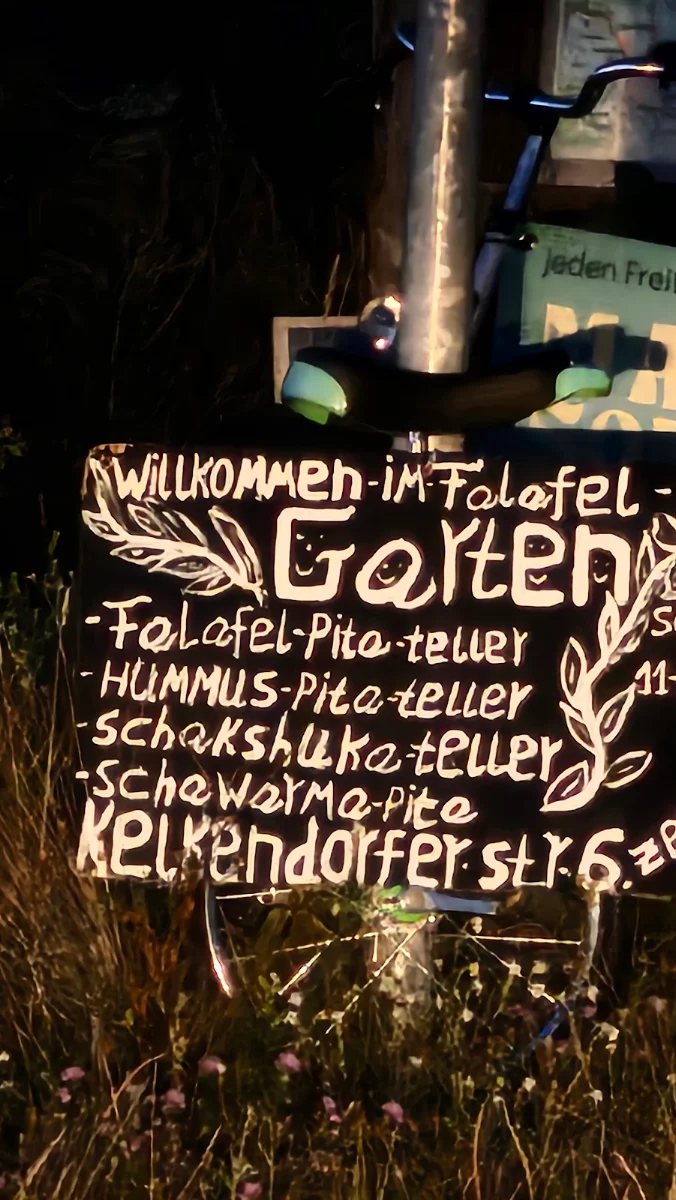 Jeden
WillKOMMen-iM-Falafel-
Garten
-Falafel-Pita-teller
-HUMMUS-Pita-teller
-schakshuka-teller
-SchaWarMa-Pita
Kelkendorfer str. 6.
11-